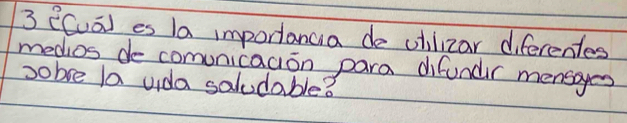 3 ¿Cuál es la importancia de utilizar diferentes
medios de comunicación para difundir mensajes
sobre la vida saludable?